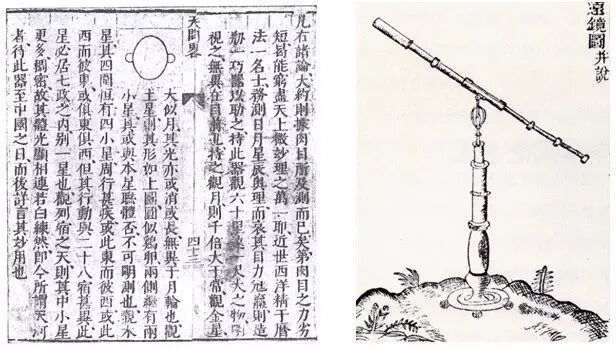 凡右諸論大約則據肉目所及測而已矣第肉目之力劣
短曷能窮盡天上微妙理之萬一耶近世西洋精于曆
法一名士務測日月星辰奧理而哀其目力尪羸則造
剏一巧器以助之持此器觀六十里遠一尺大之物明
視之無異在目前也持之觀月則千倍大于常觀金星
天問畧
四十三
大似月其光亦或消或長無異于月輪也觀
土星則其形如上圖圓似鷄卵兩側繼有兩
小星其或與本星聯體否不可明測也觀木
星其四圍恆有四小星周行甚疾或此東而彼西或此
西而彼東或俱東俱西但其行動與二十八宿甚異此
星必居七政之内别一星也觀列宿之天則其中小星
更多稠密故其體光顯相連若白練然即今所謂天河
者待此器至中國之日而後詳言其妙用也
遠鏡圖并說